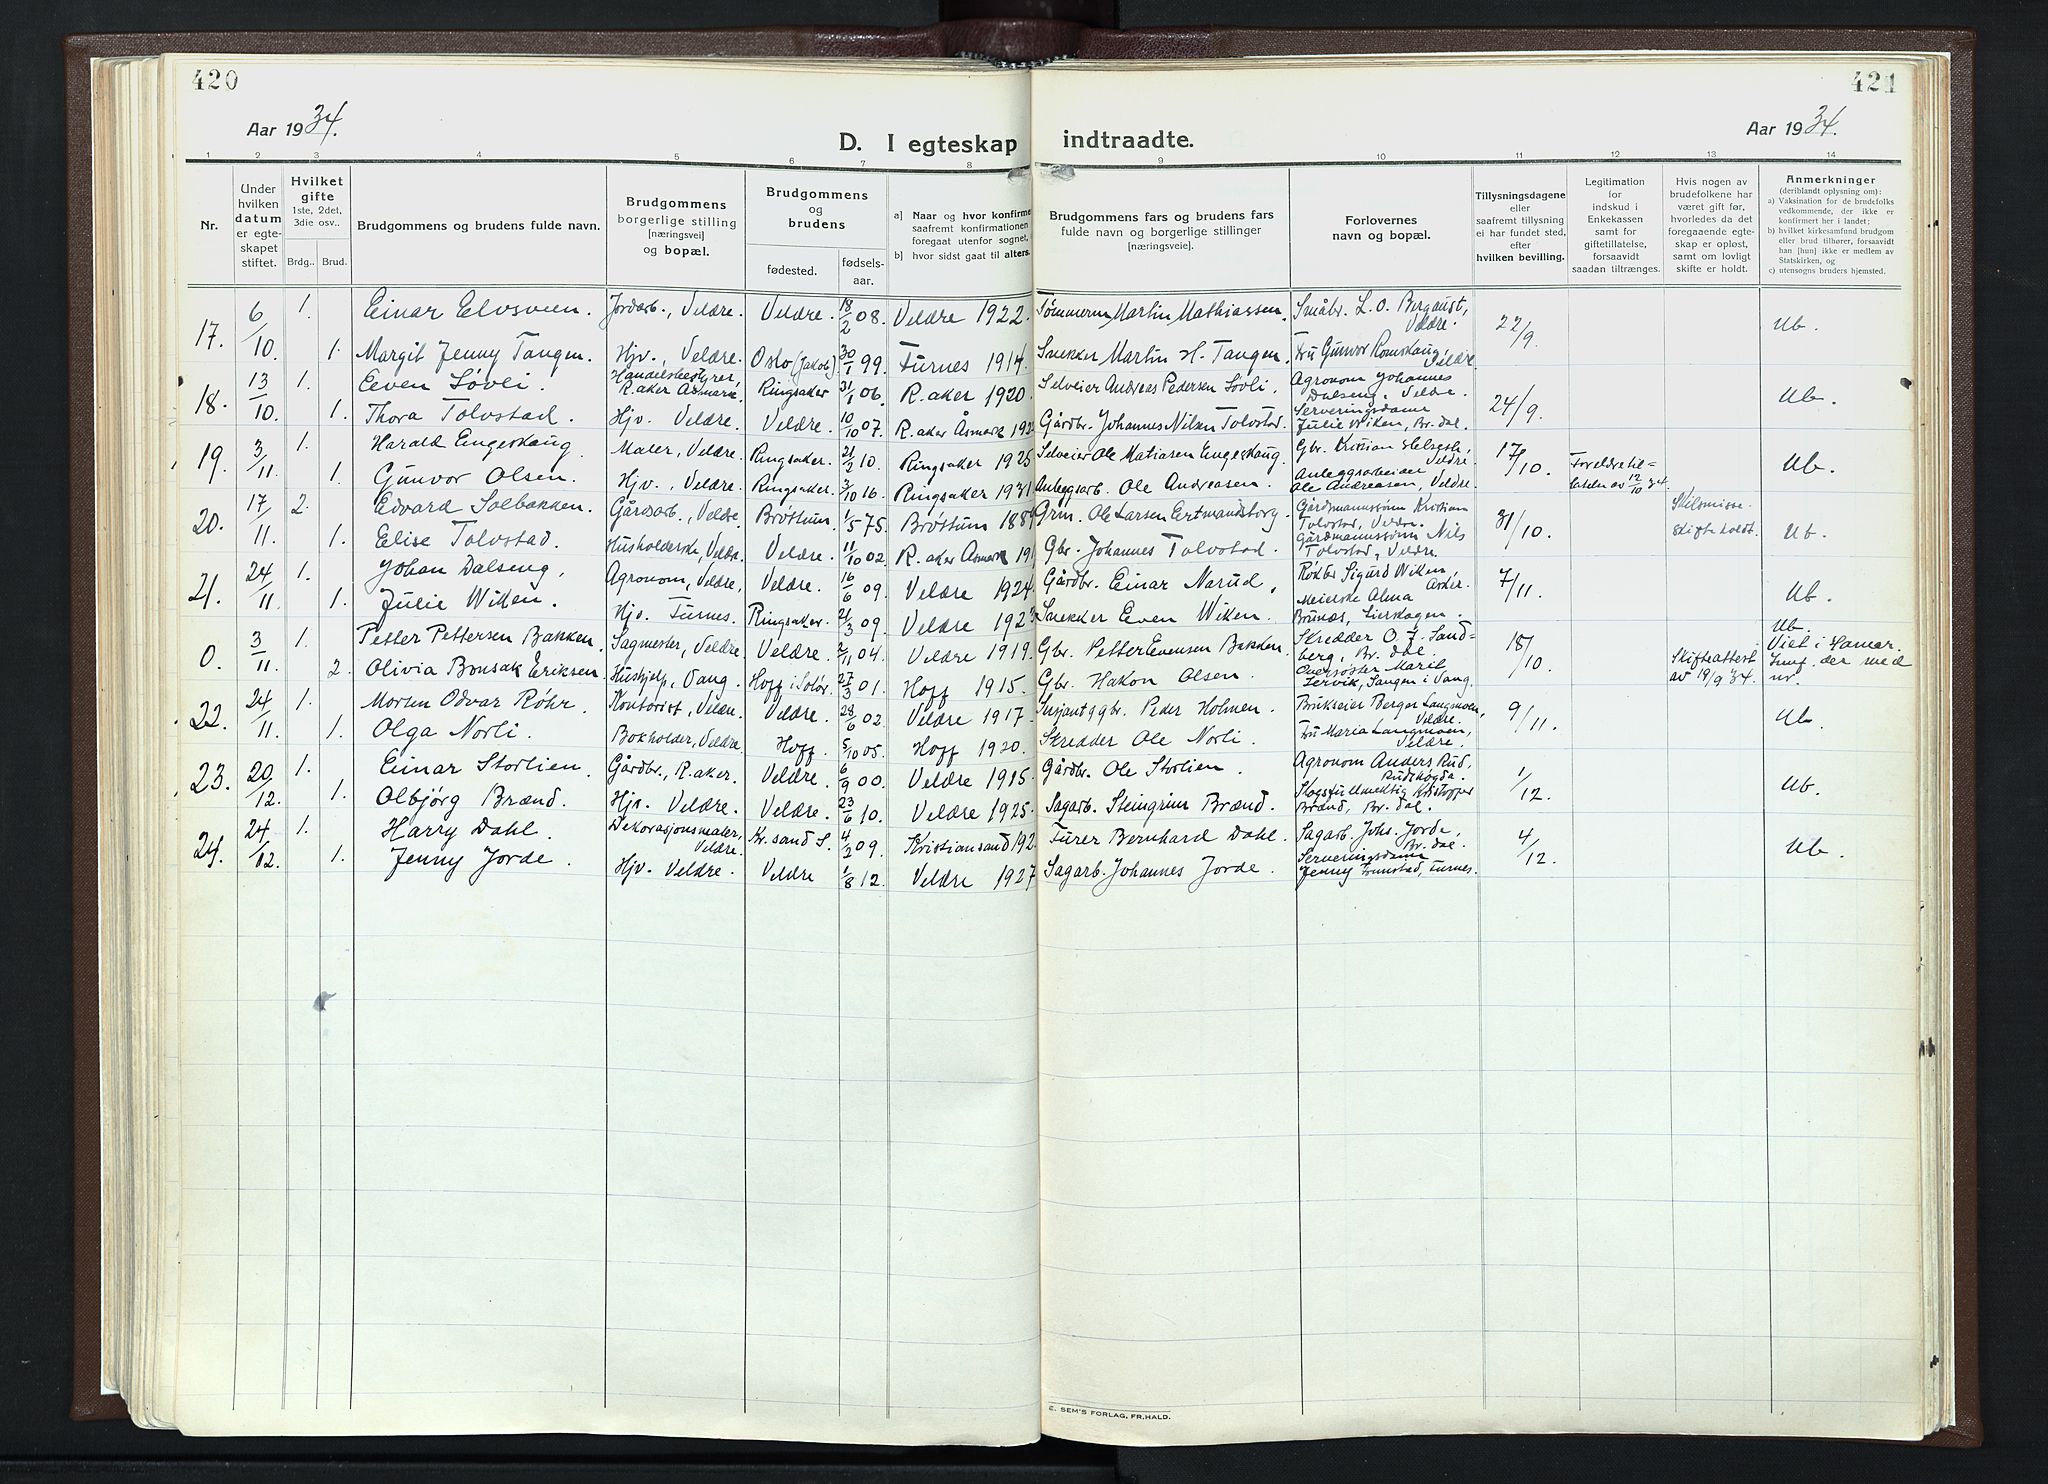 420
421
Aar 1934.
D. I egteskap indtraadte.
Aar 1934.
1 2 3 4 5 6 7 8 9 10 11 12 13 14
Nr.
Under hvilken datum er egteskapet stiftet.
Hvilket gifte 1ste, 2det, 3die osv.. Brdg.. Brud.
Brudgommens og brudens fulde navn.
Brudgommens borgerlige stilling [næringsvei] og bopæl.
Brudgommens og brudens fødested. fødselsaar.
a] Naar og hvor konfirme saafremt konfirmationen foregaat utenfor sognet,
b] hvor sidst gaat til alters.
Brudgommens fars og brudens fars fulde navn og borgerlige stillinger [næringsveie].
Forlovernes navn og bopæl.
Tillysningsdagene eller saafremt tillysning ei har fundet sted, efter hvilken bevilling.
Legitimation for indskud i Enkekassen samt for giftetillatelse, forsaavidt saadan tiltrænges.
Hvis nogen av brudefolkene har været gift før, hvorledes da det foregaaende egteskap er opløst, samt om lovligt skifte er holdt.
Anmerkninger (deriblandt oplysning om):
a) Vaksination for de brudefolks vedkommende, der ikke er konfirmert her i landet;
b) hvilket kirkesamfund brudgom eller brud tilhører, forsaavidt han [hun] ikke er medlem av Statskirken, og
c) utensogns bruders hjemsted.
17. 6/10 1. Einar Elvsveen. Jordarb., Veldre. Veldre. 18/2 08. Veldre 1922. Tømmerm. Martin Mathiassen. Småbr. L. O. Bergquist, Veldre. 22/9 Ub.
1. Margit Jenny Tangen. Hjv., Veldre. Oslo (Jakob) 30/1 99 Furnes 1914. Snekker Martin H. Tangen Fru Gunvor Romskaug, Veldre
18. 13/10 1. Even Løvli. Handelsbestyrer, R.aker Åsmark. Ringsaker 31/1 06. R.aker 1920. Selveier Andreas Pedersen Løvli. Agronom Johannes Dalseng, Veldre. 24/9. Ub.
1. Thora Tolvstad. Hjv. Veldre. Veldre. 10/10 07. R.aker Åsmark 192 Gårdbr. Johannes Nilsen Tolvstad. Serveringsdame Julie Wiken, Br.dal.
19. 3/11 1. Harald Engeskaug Maler, Veldre. Ringsaker. 21/2 10. Ringsaker 1925 Selveier Ole Matiasen Engeskaug. Gbr. Kristian Helseth, Veldre. 17/10. Foreldretillatelse av 12/10 34. Ub.
1. Gunvor Olsen. Hjv., Veldre. Ringsaker. 3/10 16. Ringsaker 1931 Anleggsarb. Ole Andreasen. Anleggsarbeider Ole Andreasen, Veldre.
20. 17/11 2. Edvard Solbakken. Gårdsarb., Veldre. Brøttum. 1/5 75. Brøttum 188 Grm. Ole Larsen Gårdmannssønn Kristian Tolvstad, Veldre. 31/10. Skilsmisse. Skifte holdt. Ub.
1. Elise Tolvstad. Husholderske, Veldre. Veldre. 11/10 02. R.aker Åsmark 19 Gbr. Johannes Tolvstad. Gårdmannssønn Nils Tolvstad, Veldre.
21. 24/11 1. Johan Dalseng, Agronom, Veldre, Veldre. 16/6 09. Veldre 1924. Gårdbr. Einar Narud, Sigurd Wiken, Asker. 7/11. Ub.
1. Julie Wiken. Hjv. Furnes. Ringsaker. 21/3 09. Veldre 1923 Snekker Even Wiken. Meierske Alma
0. 3/11 1. Petter Pettersen Bakken. Sagmester, Veldre. Veldre. 2/11 04. Veldre 1919. Gbr. Petter Evensen Bakken Skredder O. J. Sandberg, Br.dal. 18/10 Skifteattest av 19/9 34. Ub. Viet i Hamar. Innf. der med nr.
2. Olivia Bonsak Eriksen. Hushjelp, Vang. Hoff i Solør. 27/3 01. Hoff 1915. Gbr. Hakon Olsen. Oversøster Marit Vang.
22. 24/11 1. Morten Odvar Røhr. Kontorist, Veldre. Veldre. 28/6 02 Veldre 1917. Sersjant gbr. Peder Holmen. Brukseier Berger Langmoen, Veldre. 9/11. Ub.
1. Olga Norli. Bokholder, Veldre. Hoff. 5/10 05. Hoff 1920. Skredder Ole Norli. Fru Maria Langmoen, Veldre.
23. 20/12. 1. Einar Storlien. Gårdbr., R.aker. Veldre. 6/9 00. Veldre 1915. Gårdbr. Ole Storlien. Agronom Anders Rud, Rudshøgda. 1/12. Ub.
1. Olbjørg Brænd. Hjv. Veldre. Veldre. 23/6 10. Veldre 1925. Sagarb. Steingrim Brænd. Skogsfullmektig Kristoffer Brænd, Br.dal.
24. 24/12. 1. Harry Dahl. Dekorasjonsmaler, Veldre. Kr.sand S. 4/2 09. Kristiansand 192 Furer Bernhard Dahl. Sagarb. Johs. Jorde, Br.dal. 4/12. Ub.
1. Jenny Jorde. Hjv. Veldre. Veldre 1/8 12. Veldre 1927 Sagarb. Johannes Jorde. Serveringsdame Jenny Furnes.
E. SEM'S FORLAG, FR.HALD.